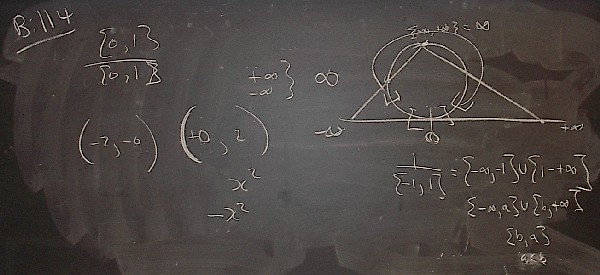 B:114
{0,1}
{0,1}
(-2,-0) (+0, 2)
x²
-x²
+∞
-∞ } ∞
{-∞,+∞} = ∞
-∞ 0 +∞
1/{-1,1} = {-∞,-1}∪{1,+∞}
{-∞,a}∪{b,+∞}
{b,a}
a<b